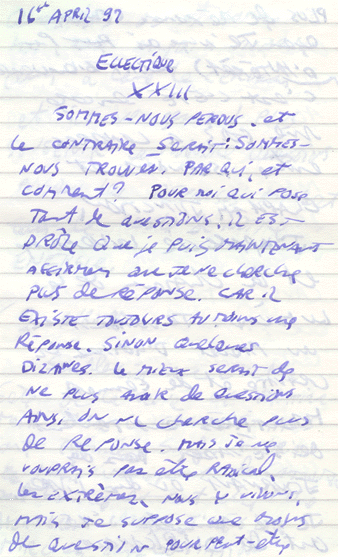 16 APRIL 92
ECLECTIQUE
XXIII
SOMMES-NOUS PERDUS. et
le CONTRAIRE SERAIT: SOMMES-
NOUS TROUVER. PAR qui, et
COMMENT? POUR MOI qui POSE
TANT de QUESTIONS, il EST
DRÔLE que je PUIS MAINTENANT
AFFIRMER que Je Ne cherche
PLUS de RÉPONSE. CAR il
EXISTE TOUJOURS AU MOINS une
RÉPONSE. SINON quelques
DIZAINES. Le MIEUX SERAIT de
NE PLUS AVOIR de QUESTIONS
AINSI, ON Ne cherche PLUS
de REPONSE. MAIS Je Ne
VOUDRAIS PAS être RADICAL,
les EXTRÊMES, NOUS y VIVONS,
MAIS Je SUPPOSE que MOINS
de QUESTION POUR PEUT-être